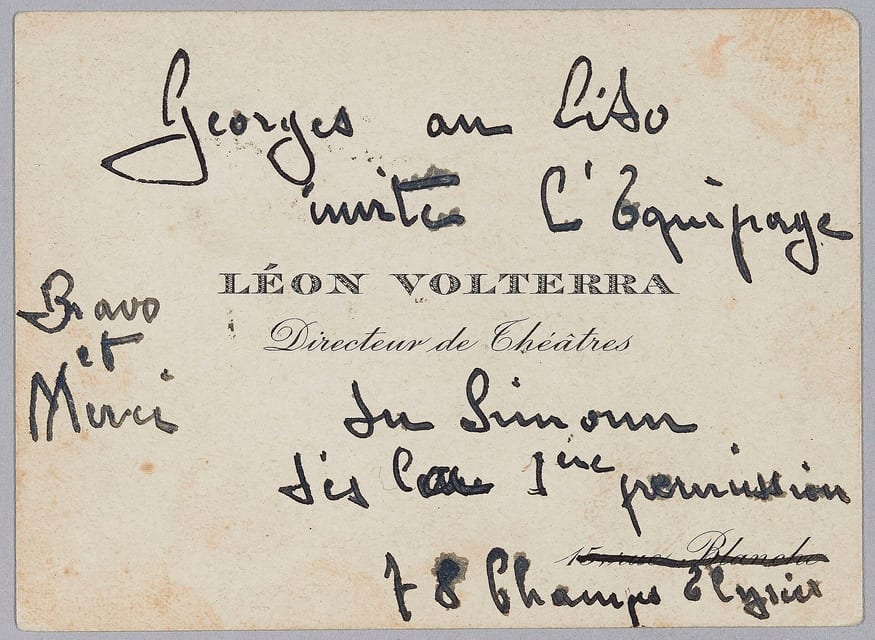 Georges au Lido
invite l'Equipage
LÉON VOLTERRA
Directeur de Théâtres
Bravo
et
Merci
du Simoun
dès la 1ère permission
15 rue Blanche
78 Champs Elysées